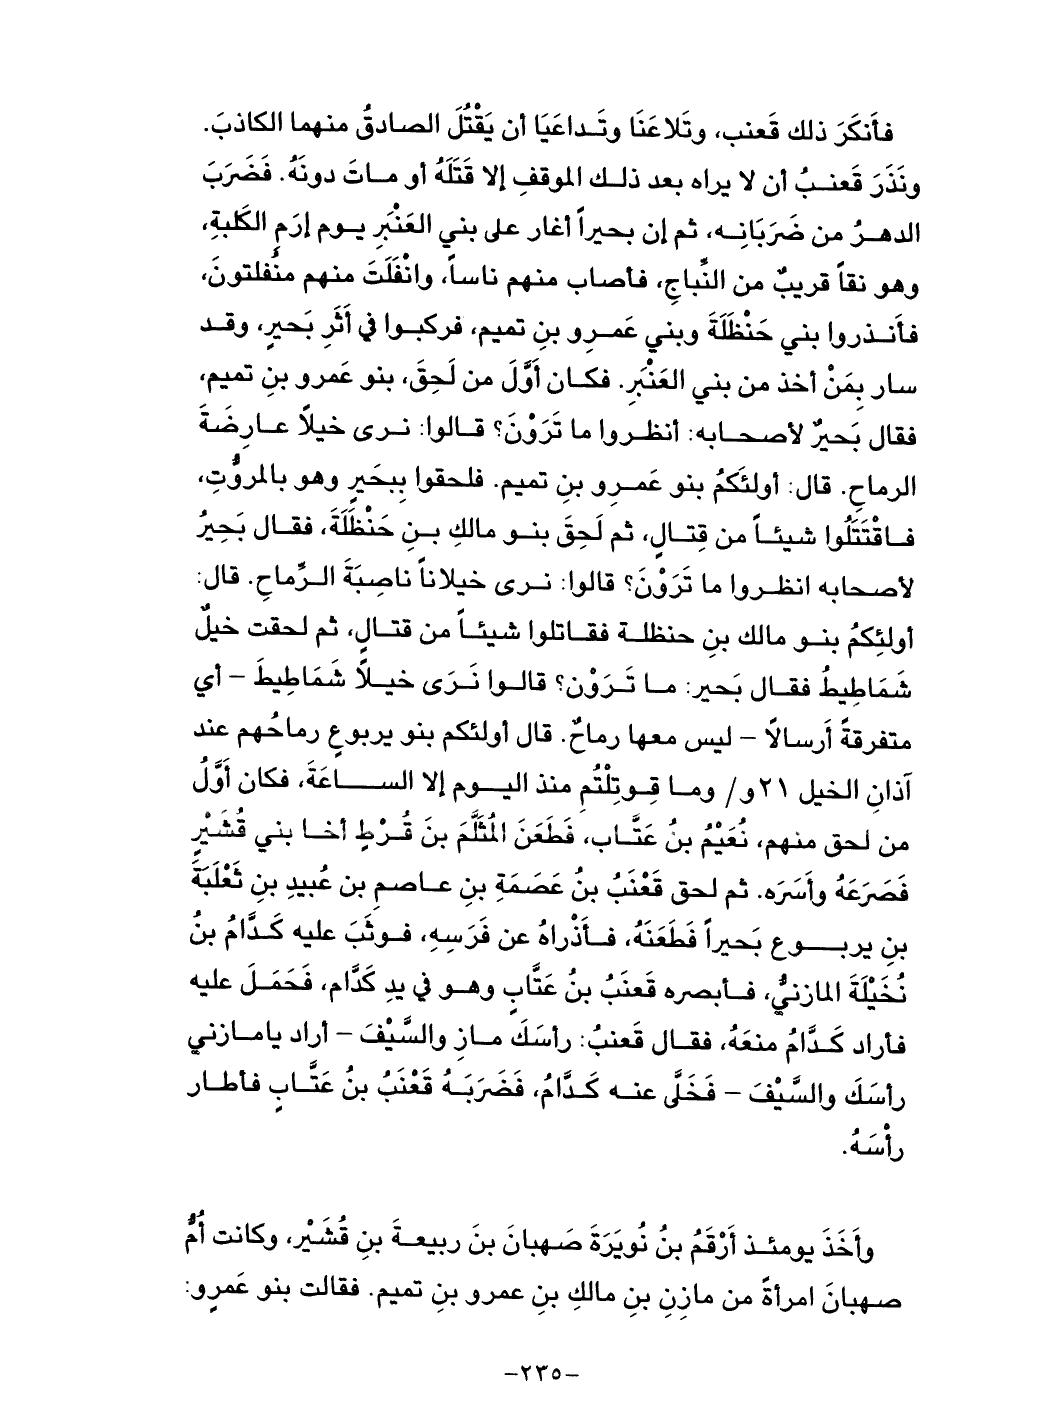 فأَنكَرَ ذلك قَعنب، وتَلاعَنَا وتَداعَيَا أن يَقْتُلَ الصادقُ منهما الكاذبَ.
ونَذَرَ قَعنبُ أن لا يراه بعد ذلك الموقفِ إلا قَتَلَهُ أو ماتَ دونَهُ. فَضَرَبَ
الدهرُ من ضَرَبَانِه، ثم إن بحيراً أغار على بني العَنْبَرِ يوم إرَمِ الكَلبةِ،
وهو نقاً قريبٌ من النِّباجِ، فأصاب منهم ناساً، وانْفَلَتَ منهم منُفلتونَ،
فأَنذروا بني حَنْظَلَةَ وبني عَمرِو بنِ تميم، فركبوا في أَثَرِ بَحيرٍ، وقد
سار بِمَنْ أخذ من بني العَنْبَرِ. فكان أوَّلَ من لَحِقَ، بنو عَمرو بنِ تميم،
فقال بَحيرٌ لأصحابه: أنظروا ما تَرَوْنَ؟ قالوا: نرى خيلاً عارِضةَ
الرماحِ. قال: أولئَكمُ بنو عَمرِو بنِ تميم. فلحقوا بِبحَيرٍ وهو بالمرُّوتِ،
فاقْتَتَلُوا شيئاً من قِتالٍ، ثم لَحِقَ بنو مالكِ بنِ حَنْظَلَةَ، فقال بَحِيرُ
لأصحابه انظروا ما تَرَوْنَ؟ قالوا: نرى خيلاناً ناصِبَةَ الرِّماحِ. قال:
أولئِكمُ بنو مالك بنِ حنظلة فقاتلوا شيئاً من قتالٍ، ثم لحقت خيلٌ
شَمَاطِيطُ فقال بَحير: ما تَرَوْن؟ قالوا نَرَى خيلاً شَمَاطِيطَ – أي
متفرقةً أَرسالاً – ليس معها رماحٌ. قال أولئكم بنو يربوعٍ رماحُهم عند
آذانِ الخيل ٢١و/ وما قوتِلْتُم منذ اليوم إلا الساعَةَ، فكان أوَّلُ
من لحق منهم، نُعَيْمُ بنُ عَتَّاب، فَطَعَنَ المُثَلَّمَ بنَ قُرْطٍ أخا بني قُشَيْرٍ
فَصَرَعَهُ وأَسَرَه. ثم لحق قَعْنَبُ بنُ عَصَمَةِ بنِ عاصمِ بن عُبيدِ بنِ ثَعْلَبَةَ
بنِ يربوع بَحيراً فَطَعَنَهُ، فأَذْراهُ عن فَرَسِهِ، فوثَبَ عليه كَدَّامُ بنُ
نُخَيْلَةَ المازنيُّ، فأبصره قَعنَبُ بنُ عَتَّابٍ وهو في يدِ كَدَّام، فَحَمَلَ عليه
فأراد كَدَّامُ منعَهُ، فقال قَعنبُ: رأسَكَ مازِ والسَّيْفَ – أراد يامازني
رأسَكَ والسَّيْفَ – فَخَلَّى عنه كَدَّامُ، فَضَرَبَهُ قَعْنَبُ بنُ عَتَّابٍ فأطار
رأْسَهُ.
وأَخَذَ يومئذ أَرْقَمُ بنُ نُويَرَةَ صَهبانَ بنَ ربيعةَ بنِ قُشَيْر، وكانت أُمُّ
صهبانَ امرأةً من مازِنِ بنِ مالكِ بنِ عمرو بنِ تميم. فقالت بنو عَمرٍو:
-٢٣٥-